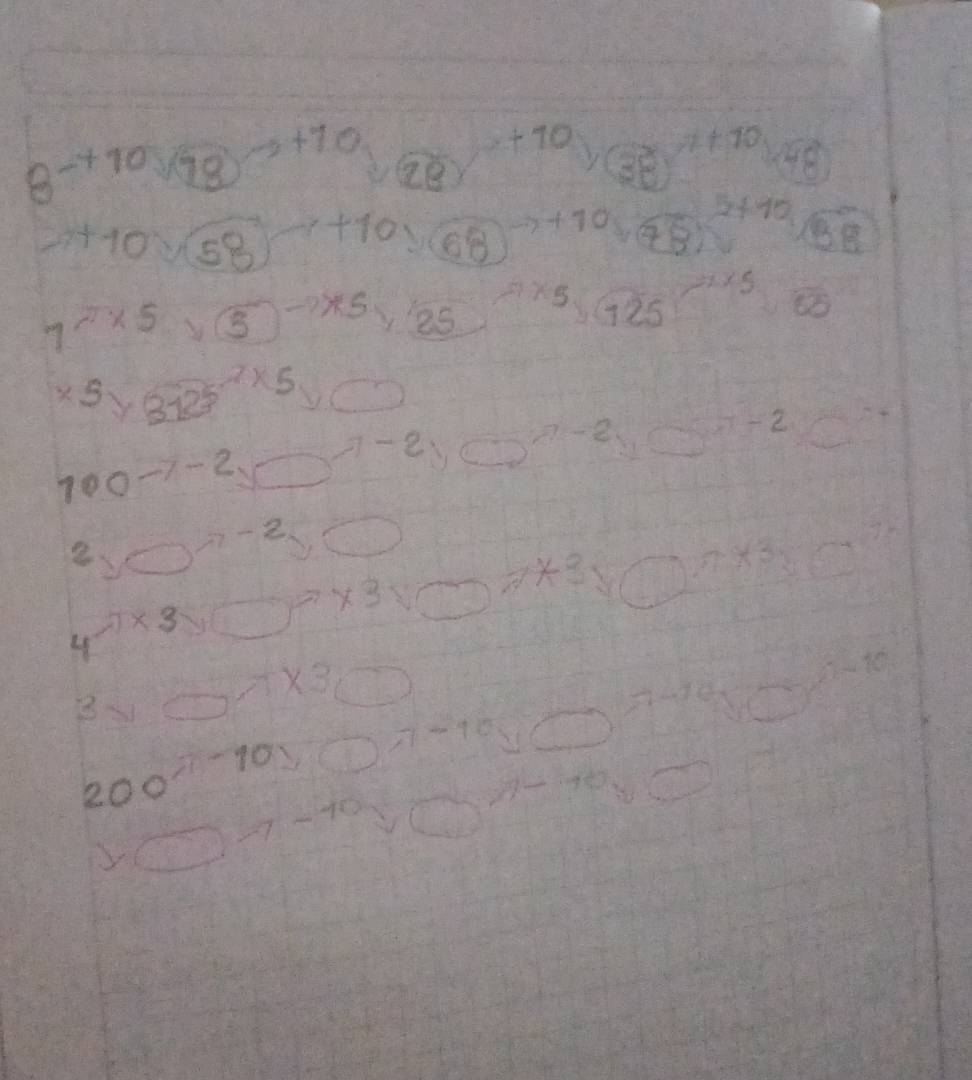 8 → +10 ↘ 18 → +10 ↘ 28 → +10 ↘ 38 → +10 ↘ 48
→ +10 ↘ 58 → +10 ↘ 68 → +10 ↘ 78 → +10 ↘ 88
1 → ×5 ↘ 5 → ×5 ↘ 25 → ×5 ↘ 125 → ×5
×5 ↘ 3125 → ×5 ↘
100 → -2 ↘ → -2 ↘ → -2 ↘ → -2 → -
2 ↘ → -2 ↘
4 → ×3 ↘ → ×3 ↘ → ×3 ↘ → ×3 ↘ →
3 ↘ → ×3
200 → -10 ↘ → -10 ↘ → -10 ↘ → -10
↘ → -10 ↘ → -10 ↘